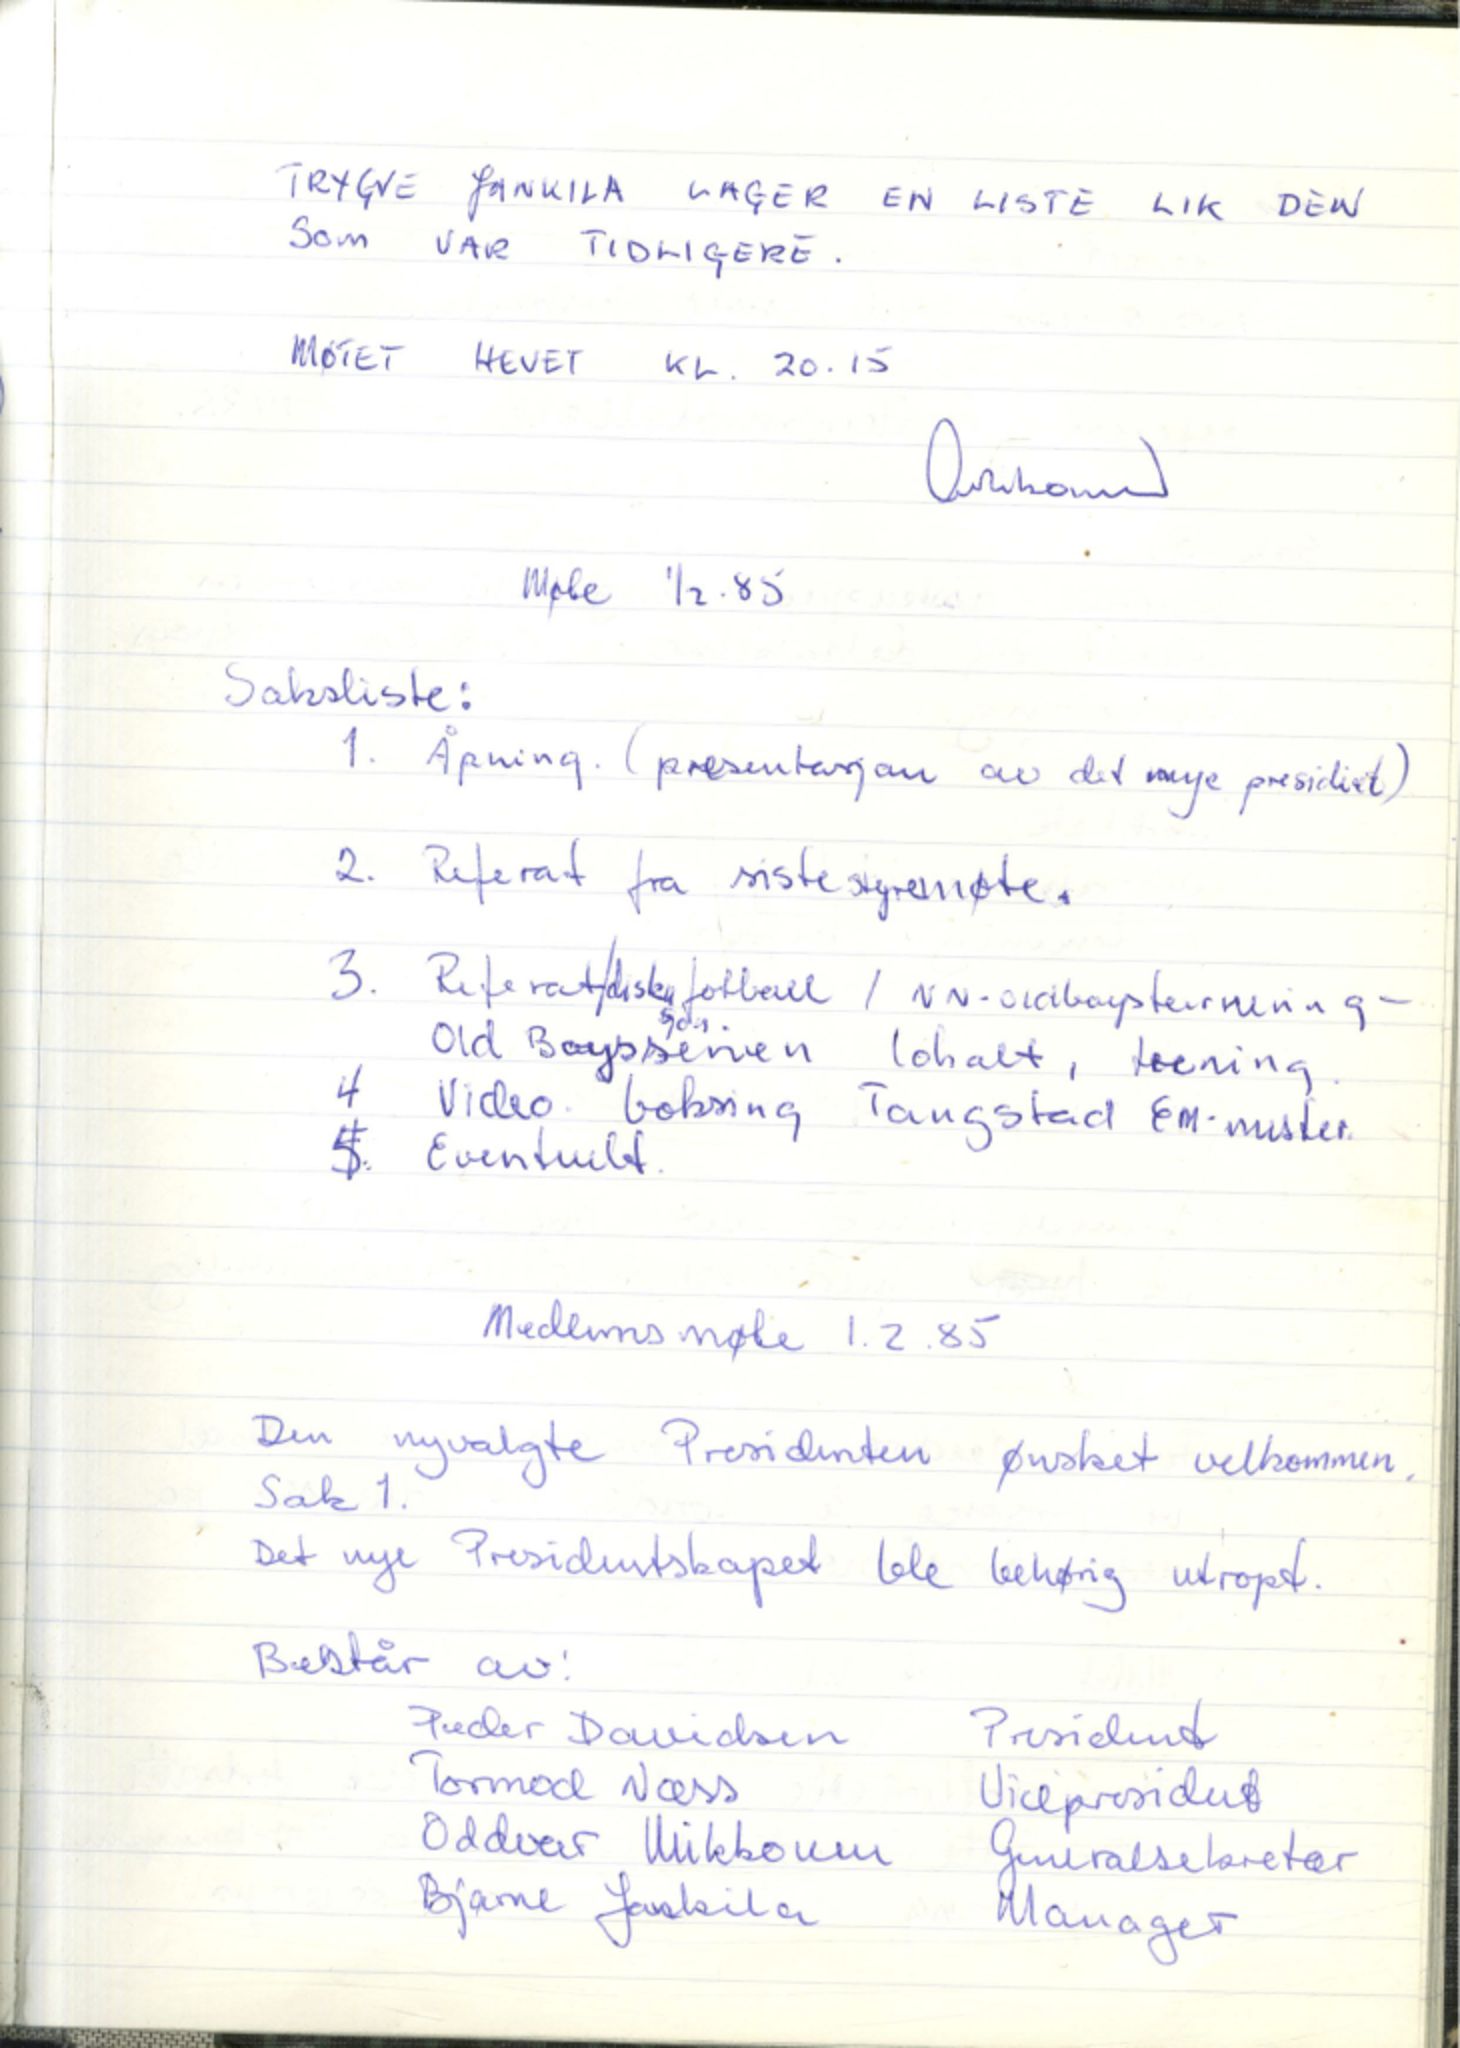 TRYGVE JANKILA LAGER EN LISTE LIK DEN
SOM VAR TIDLIGERE.
MØTET HEVET KL. 20.15
Møte 1/2.85
Saksliste:
1. Åpning. (presentasjon av det nye presidiet)
2. Referat fra siste styremøte.
3. Referat/diskusjon. fotball / NN-oldboysturnering -
Old Boysserien lokalt, trening.
4 Video. boksing Tangstad EM-mester.
5. Eventuelt.
Medlemsmøte 1.2.85
Den nyvalgte Presidenten ønsket velkommen.
Sak 1.
Det nye Presidentskapet ble behørig utropt.
Består av:
Peder Davidsen President
Tormod Næss Vicepresident
Oddvar Mikkonen Generalsekretær
Bjarne Jankila Manager